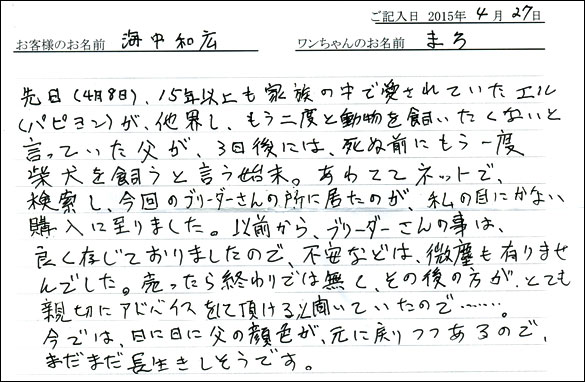 ご記入日 2015年 4月 27日
お客様のお名前 海中和広 ワンちゃんのお名前 まろ
先日(4月8日)、15年以上も家族の中で愛されていたエル
(パピヨン)が、他界し、もう二度と動物を飼いたくないと
言っていた父が、3日後には、死ぬ前にもう一度
柴犬を飼うと言う始末。あわててネットで、
検索し、今回のブリーダーさんの所に居たのが、私の目にかない
購入に至りました。以前から、ブリーダーさんの事は、
良く存じておりましたので、不安などは、微塵も有りませ
んでした。売ったら終わりでは無く、その後の方が、とても
親切にアドバイスをして頂けると聞いていたので……。
今では、日に日に父の顔色が、元に戻りつつあるので、
まだまだ長生きしそうです。